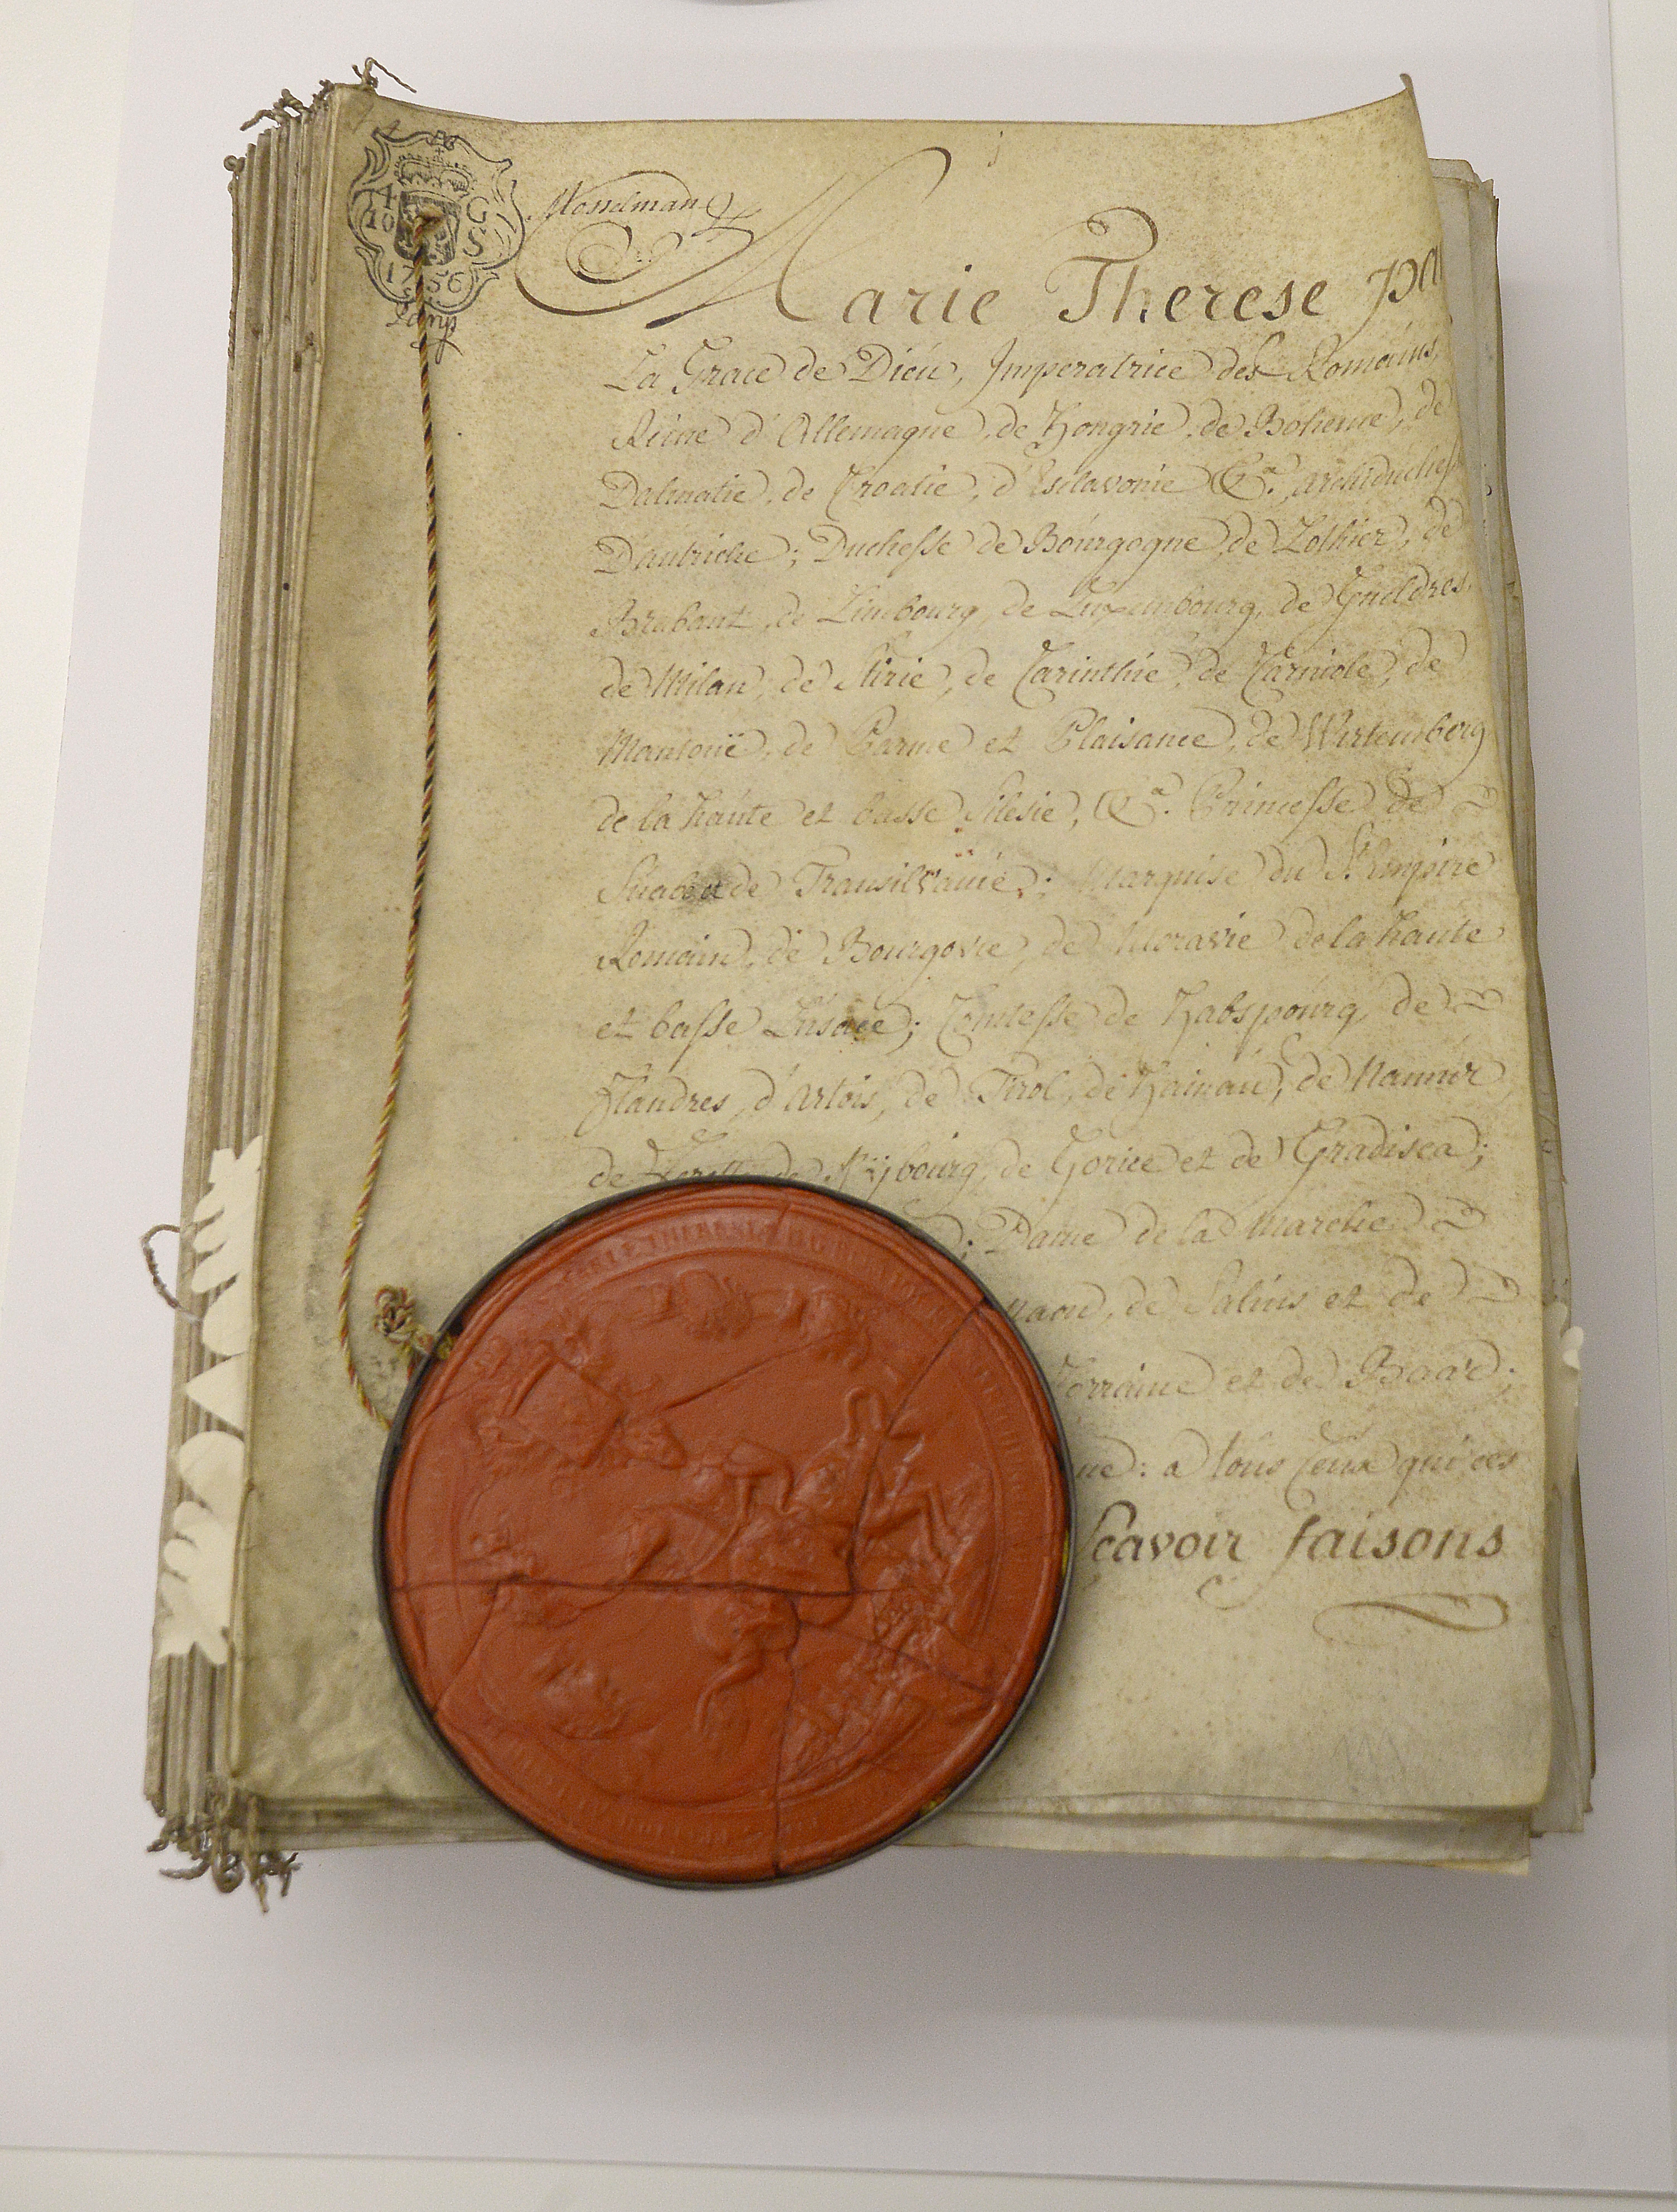 4 G
10 S
1756
Marie Therese par
La Grace de Dieu, Imperatrice des Romains,
Reine d'Allemagne, de Hongrie, de Boheme, de
Dalmatie, de Croatie, d'Esclavonie &a. Archiduchesse
D'autriche; Duchesse de Bourgogne, de Lothier, de
Brabant, de Limbourg, de Luxembourg, de Gueldres,
de Milan, de Stirie, de Carinthie, de Carniole, de
Mantouë, de Parme et Plaisance, de Wirtemberg
de la haute et basse Silesie, &a. Princesse de
Suabe et de Transilvanie; Marquise du St. Empire
Romain, de Bourgovie, de Moravie de la haute
et basse Lusace; Comtesse de Habspourg, de
Flandres, d'Artois, de Tirol, de Hainau, de Namur,
de de Kybourg, de Gorice et de Gradisca;
; Dame de la Marche
naon, de Salins et de
Lorraine et de Baar;
ne: a tous ceux qui ces
Scavoir faisons